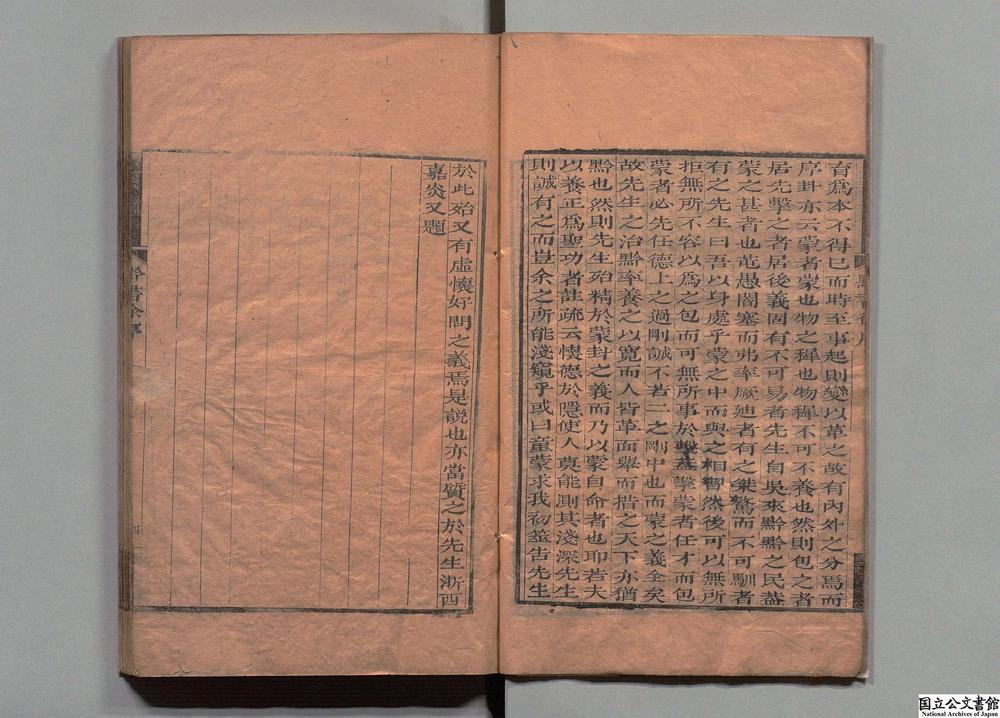 育爲本不得已而時至事起則變以革之故有內外之分焉而
序卦亦云蒙者蒙也物之穉也物穉不可不養也然則包之者
居先擊之者居後義固有不可易者先生自吳來黔黔之民蓋
蒙之甚者也芚愚闇塞而弗率厥廸者有之桀驁而不可馴者
有之先生曰吾以身處乎蒙之中而與之相習然後可以無所
拒無所不容以爲之包而可無所事於擊蓋擊蒙者任才而包
蒙者必先任德上之過剛誠不若二之剛中也而蒙之義全矣
故先生之治黔率養之以寬而人皆革面舉而措之天下亦猶
黔也然則先生殆精於蒙封之義而乃以蒙自命者也耶若夫
以養正爲聖功者註疏云懷德於隱使人莫能測其淺深先生
則誠有之而豈余之所能淺窺乎或曰童蒙求我初筮告先生
於此殆又有虛懷好問之義焉是說也亦當質之於先生浙西
嘉炎又題
黔書
国立公文書館
National Archives of Japan